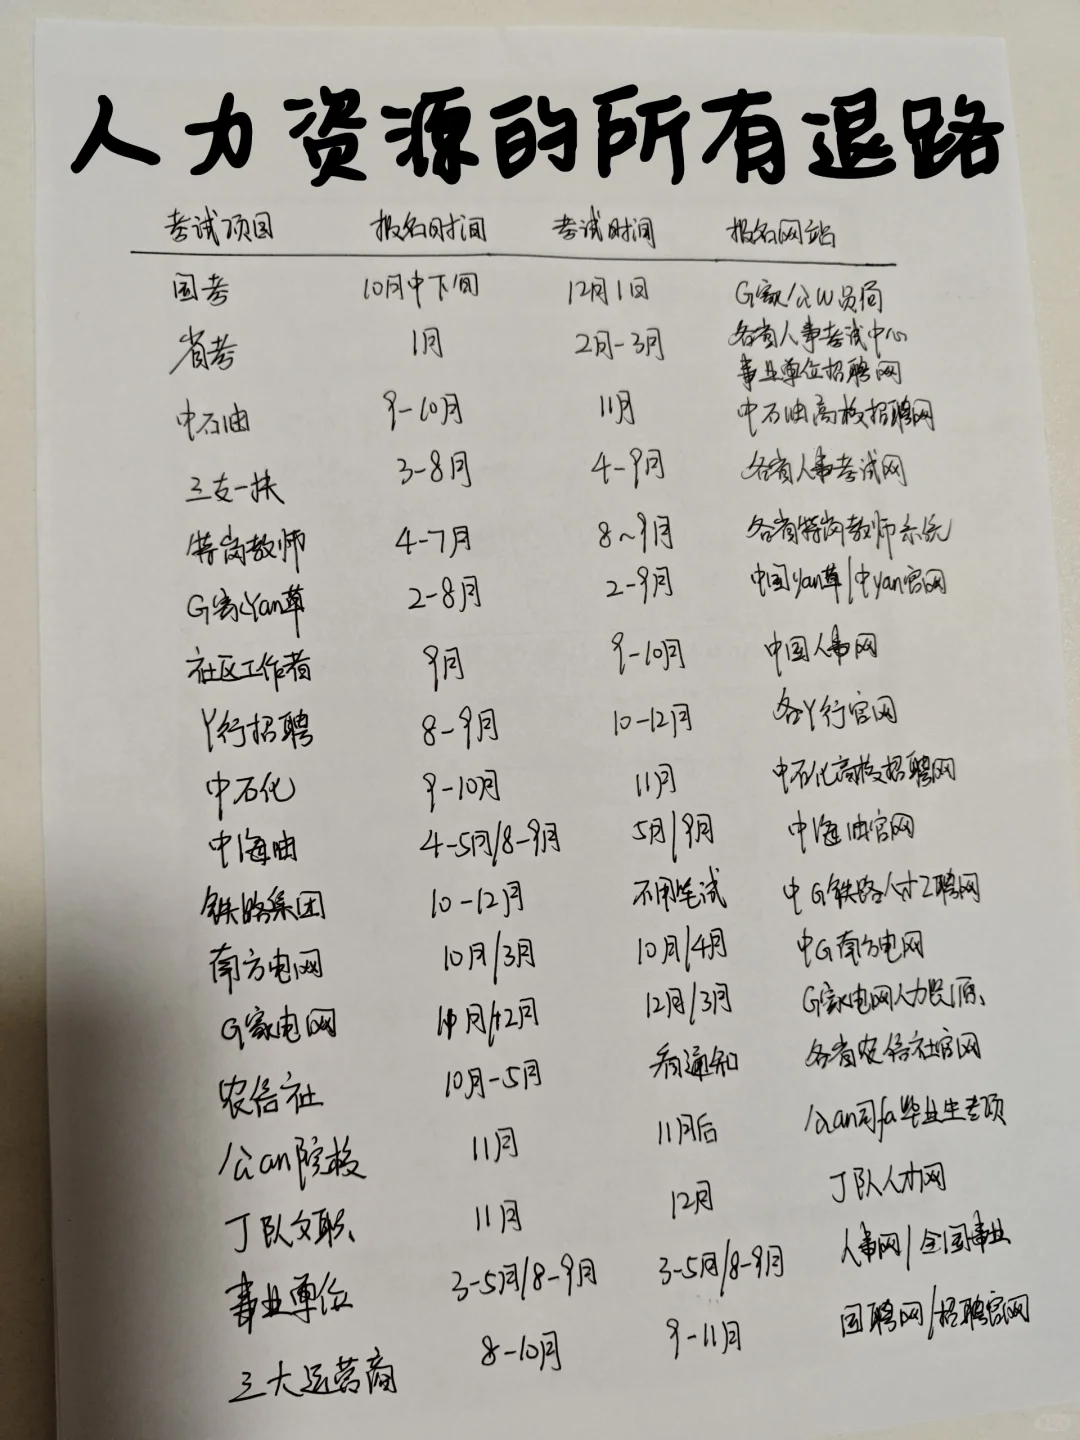 人力资源的所有退路
考试项目 报名时间 考试时间 报名网站
国考 10月中下旬 12月1日 G家公W员局
省考 1月 2月-3月 各省人事考试中心
事业单位招聘网
中石油 9-10月 11月 中石油高校招聘网
三支一扶 3-8月 4-9月 各省人事考试网
特岗教师 4-7月 8~9月 各省特岗教师系统
G家Yan草 2-8月 2-9月 中国Yan草/中Yan官网
社区工作者 9月 9-10月 中国人事网
Y行招聘 8-9月 10-12月 各Y行官网
中石化 9-10月 11月 中石化高校招聘网
中海油 4-5月/8-9月 5月/9月 中海油官网
铁路集团 10-12月 不用笔试 中G铁路人才Z聘网
南方电网 10月/3月 10月/4月 中G南方电网
G家电网 月/2月 12月/3月 G家电网人力资源
农信社 10月-5月 看通知 各省农信社官网
公an院校 11月 11月后 公an司fa毕业生专项
J队文职 11月 12月 J队人才网
事业单位 3-5月/8-9月 3-5月/8-9月 人事网/全国事业
三大运营商 8-10月 9-11月 国聘网/招聘官网